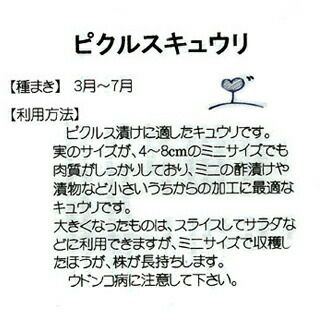 ピクルスキュウリ
【種まき】 3月～7月
【利用方法】
ピクルス漬けに適したキュウリです。
実のサイズが、4～8cmのミニサイズでも
肉質がしっかりしており、ミニの酢漬けや
漬物など小さいうちからの加工に最適な
キュウリです。
大きくなったものは、スライスしてサラダな
どに利用できますが、ミニサイズで収穫し
たほうが、株が長持ちします。
ウドンコ病に注意して下さい。